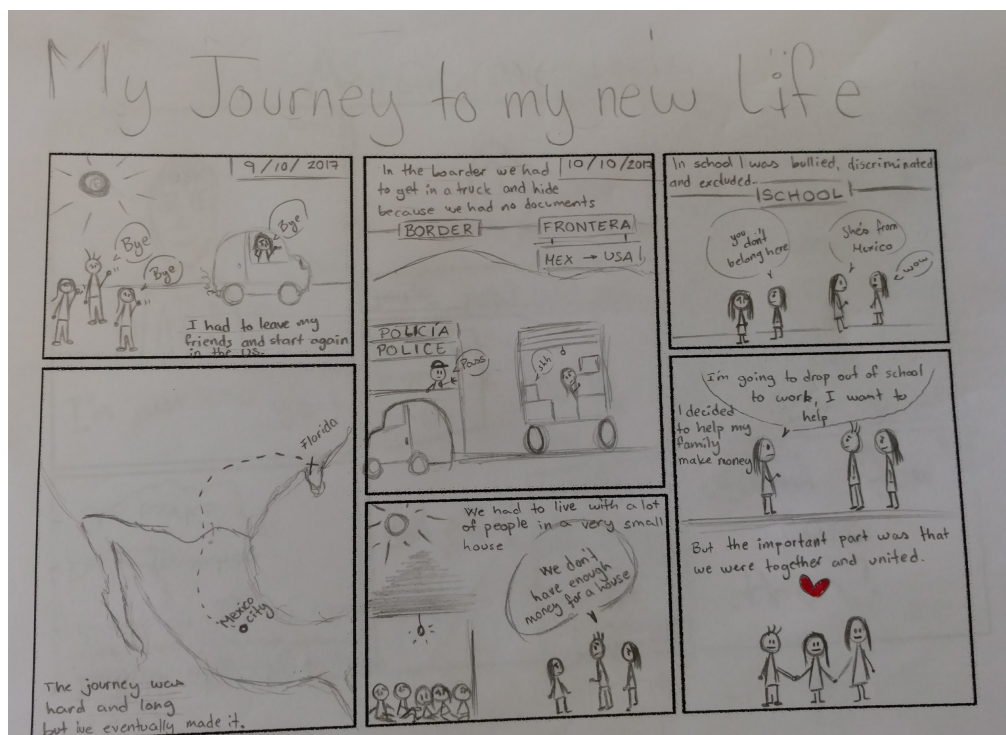 My Journey to my new Life
9/10/2017
Bye
Bye
Bye
I had to leave my
friends and start again
in the US.
The journey was
hard and long
but we eventually made it.
Florida
Mexico
city
In the boarder we had
to get in a truck and hide
because we had no documents
10/10/2017
BORDER
FRONTERA
MEX → USA
POLICÍA
POLICE
Pass
shh
We had to live with a lot
of people in a very small
house
We don't
have enough
money for a house
In school I was bullied, discriminated
and excluded.
SCHOOL
you don't
belong here
She's from
Mexico
wow
I'm going to drop out of school
to work, I want to
help
I decided
to help my
family
make money
But the important part was that
we were together and united.